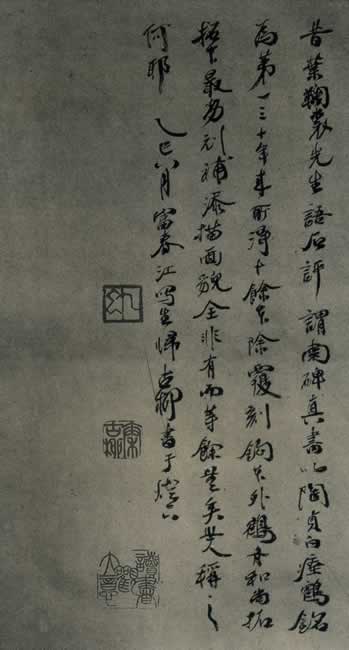 昔葉鞠裳先生語石評謂南碑真書以陶貞白瘞鶴銘
為第一三十年來所得十餘本除覆刻本外鶴舟和尚拓
最劣刓補添描面貌全非有而等餘矣世人稱之
何耶 乙巳八月富春江寫生歸古柳書于燈下
讀書觀大意